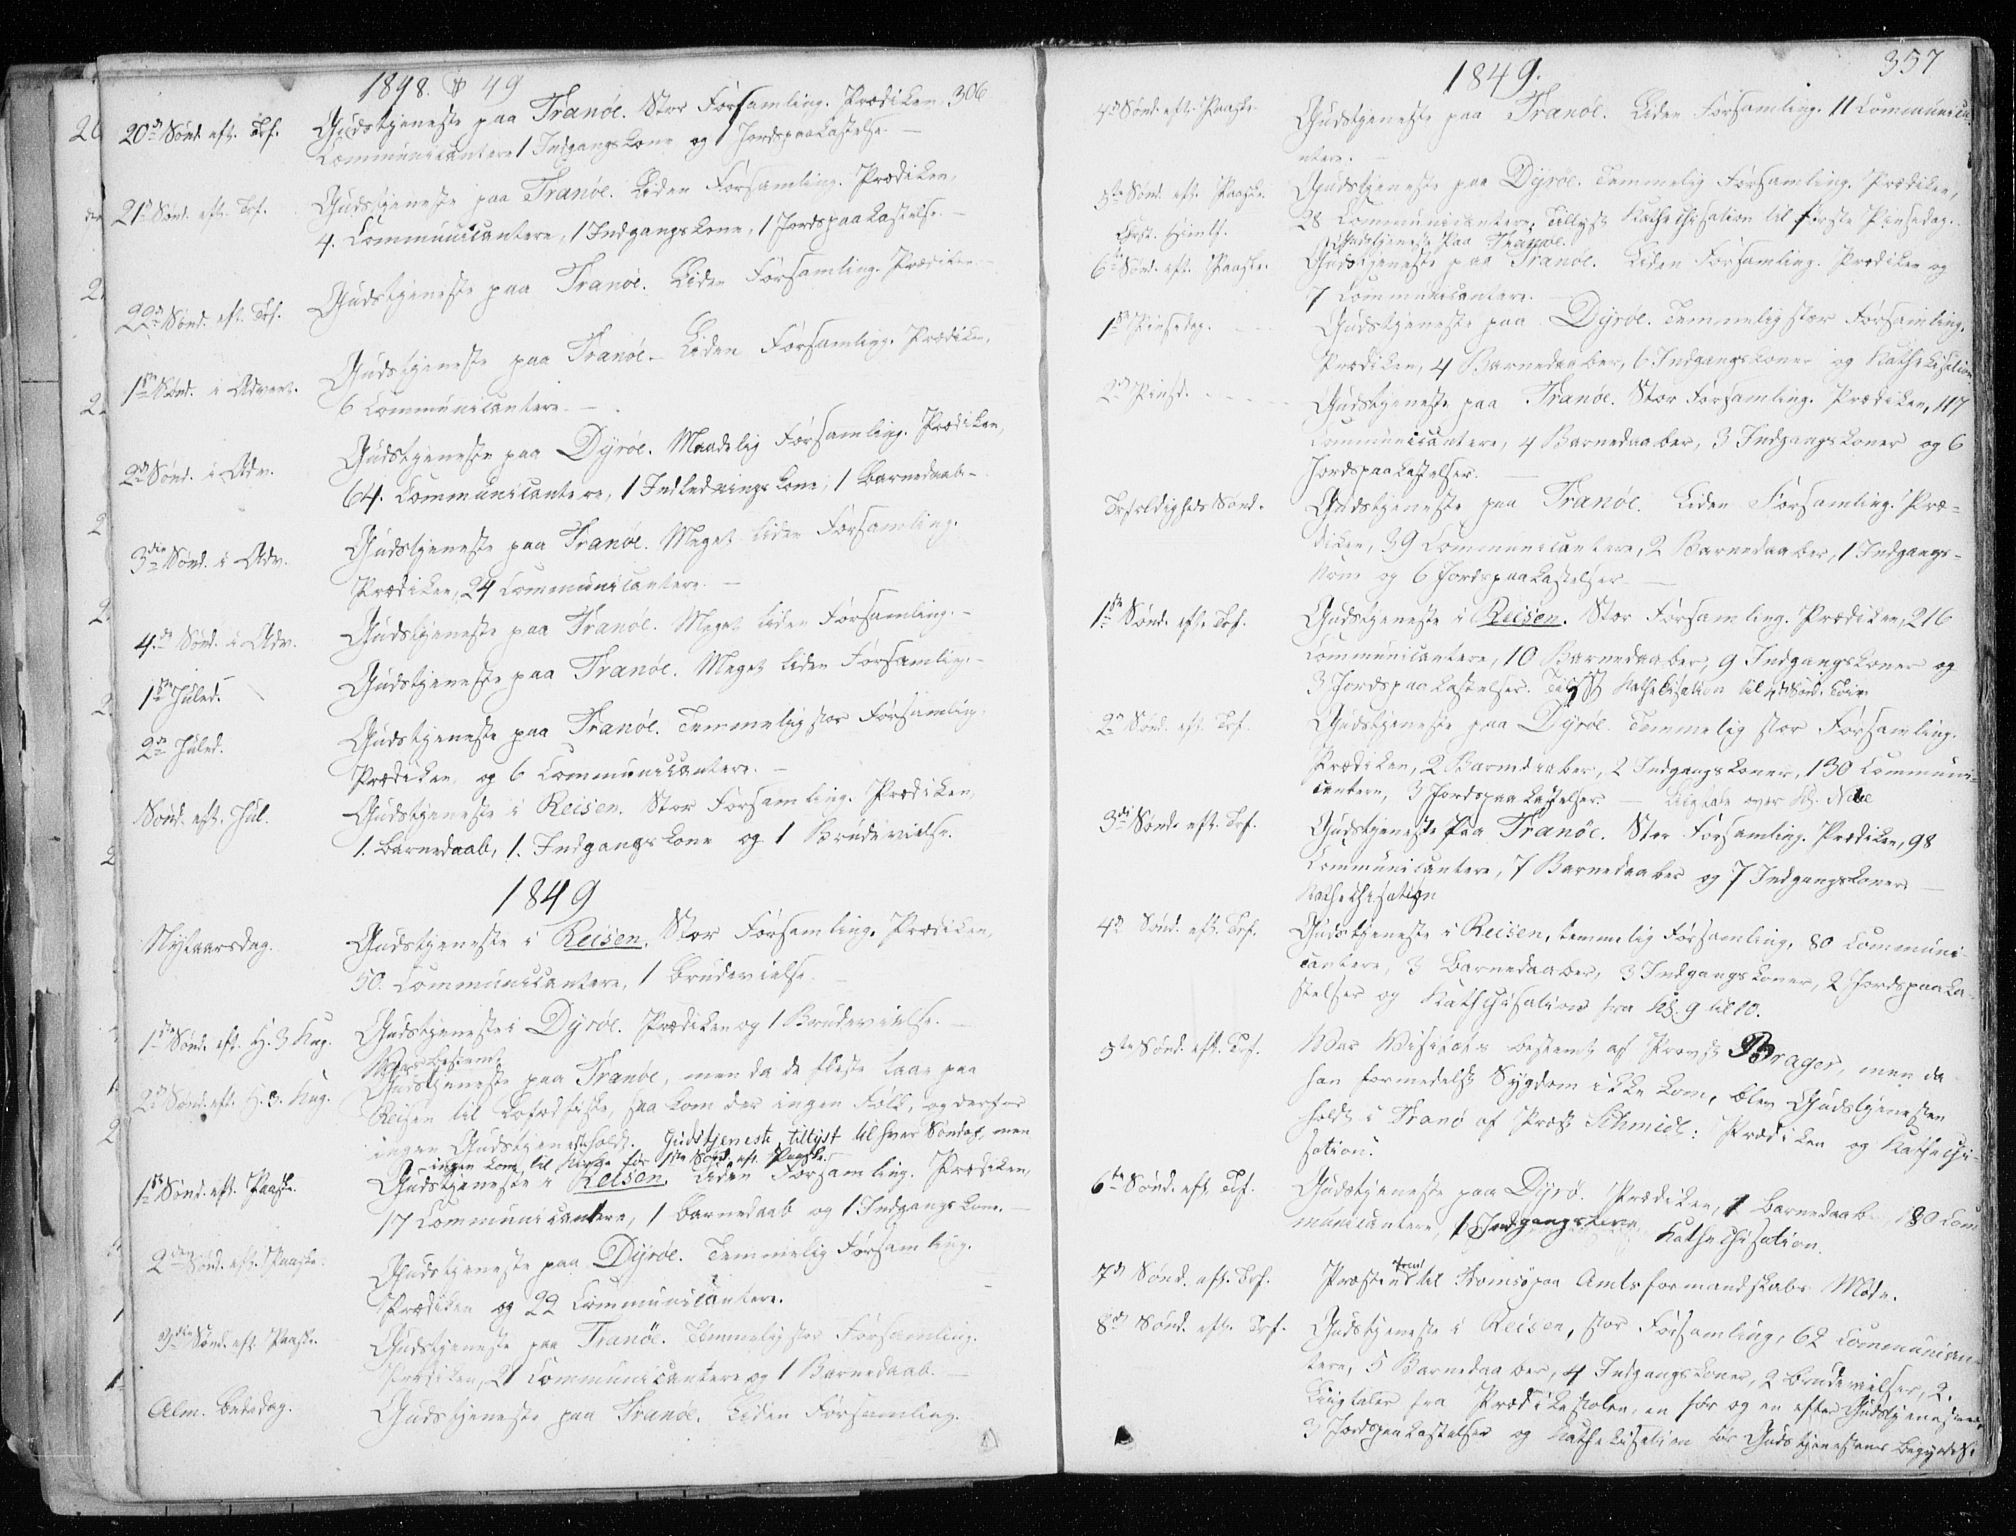 1848. & 49
20de Sønd. eft. Trf. Gudstjeneste paa Tranöe. Stor Forsamling. Prædiken. 306
Communicantere 1 Indgangskone og 1 Jordspaakastelse. —
21de Sønd. eft. Trf. Gudstjeneste paa Tranöe. Liden Forsamling. Prædiken,
4. Communicantere, 1 Indgangskone, 1 Jordspaakastelse. —
22de Sønd. eft. Trf. Gudstjeneste paa Tranöe. Liden Forsamling. Prædiken —
1ste Sønd. i Advent. Gudstjeneste paa Tranöe. — Liden Forsamling. Prædiken,
6 Communicantere. — .
2den Sønd. i Adv. Gudstjeneste paa Dyröe. Maadelig Forsamling. Prædiken,
64. Communicantere, 1 Indledningskone, 1 Barnedaab —
3die Sønd. i Adv. Gudstjeneste paa Tranöe. Meget liden Forsamling.
Prædiken, 24 Communicantere. —
4de Sønd. i Adv. Gudstjeneste paa Tranöe. Meget liden Forsamling. —
1ste Juled. Gudstjeneste paa Tranöe. Meget liden Forsamling. —
2den Juled. Gudstjeneste paa Tranöe. Temmelig stor Forsamling.
Prædiken og 6 Communicantere. —
Sønd. eft. Jul. Gudstjeneste i Reisen. Stor Forsamling. Prædiken,
1. Barnedaab, 1. Indgangskone og 1 Brudevielse.
1849
Nytaarsdag. Gudstjeneste i Reisen. Stor Forsamling. Prædiken,
50. Communicantere, 1 Brudevielse.
1ste Sønd. eft. H. 3 Kug. Gudstjeneste i Dyröe. Prædiken og 1 Brudevielse. —
Var bestemt
2den Sønd. eft. H. 3. Kug. Gudstjeneste paa Tranöe, men da de fleste laae paa
Reisen til Lofodfiske, saa kom der ingen Folk, og derfor
ingen Gudstjeneste holdt. Gudstjeneste tillyst til hver Søndag, men
ingen kom til Kirke før 1ste Sønd. eft. Paaske.
1ste Sønd. eft. Paaske. Gudstjeneste i Reisen. Liden Forsamling. Prædiken,
17 Communicantere, 1 Barnedaab og 1 Indgangskone. —
2den Sønd. eft. Paaske. Gudstjeneste paa Dyröe. Temmelig Forsamling.
Prædiken og 22 Communicantere.
3die Sønd. eft. Paaske. Gudstjeneste paa Tranöe. Temmelig stor Forsamling.
Prædiken, 21 Communicantere og 1 Barnedaab. —
Alm. Bededag. Gudstjeneste paa Tranöe. Liden Forsamling.
357
1849.
4de Sønd. eft. Paaske. Gudstjeneste paa Tranöe. Liden Forsamling. 11 Communica-
ntere. —
5te Sønd. eft. Paaske. Gudstjeneste paa Dyröe. Temmelig Forsamling. Prædiken,
28 Communicantere, Tillyst Kathechisation til første Pinsedag.
Christi Himlf. Gudstjeneste paa Tranöe.
6te Sønd. eft. Paaske. Gudstjeneste paa Tranöe. Liden Forsamling. Prædiken og
7 Communicantere. —
1ste Pinsedag. Gudstjeneste paa Dyröe. Temmelig stor Forsamling,
Prædiken, 4 Barnedaaber, 6 Indgangskoner og Kathekisation
2den Pinsd. Gudstjeneste paa Tranöe. Stor Forsamling. Prædiken, 117
Communicantere, 4 Barnedaaber, 3 Indgangskoner og 6
Jordspaakastelser. —
Trefoldigheds Sønd. Gudstjeneste paa Tranöe. Liden Forsamling. Præ-
diken, 39 Communicantere, 2 Barnedaaber, 1 Indgangs-
kone og 6 Jordspaakastelser. —
1ste Sønd. eft. Trf. Gudstjeneste i Reisen. Stor Forsamling. Prædiken, 216
Communicantere, 10 Barnedaaber, 9 Indgangskoner og
3 Jordspaakastelser. Tillyst Kathekisation til 4de Sønd.
2den Sønd. eft. Trf. Gudstjeneste paa Dyröe. Temmelig stor Forsamling.
Prædiken, 2 Barnedaaber, 2 Indgangskoner, 130 Communi-
cantere, 3 Jordspaakastelser. — Liigtale over
3die Sønd. eft. Trf. Gudstjeneste paa Tranöe. Stor Forsamling. Prædiken, 98
Communicantere, 7 Barnedaaber og 7 Indgangskoner —
Kathechisation
4de Sønd. eft. Trf. Gudstjeneste i Reisen, temmelig Forsamling, 80 Communi-
cantere, 3 Barnedaaber, 3 Indgangskoner, 2 Jordspaaka-
stelser og Kathechisation fra Kl. 9 til 10.
5te Sønd. eft. Trf. Var Visitats bestemt af Provst Prager, men da
han formedelst Sygdom ikke kom, blev Gudstjenesten
holdt i Tranö af Præst Schmidt: Prædiken og Kathechi-
sation.
6te Sønd. eft. Trf. Gudstjeneste paa Dyrö. Prædiken, 1 Barnedaab, 180 Com
municantere, 1 Indgangskone, Kathechisation.
7de Sønd. eft. Trf. Præsten til Tromsö paa Amtsformandskabs Møde.
8de Sønd. eft. Trf. Gudstjeneste i Reisen, stor Forsamling, 62 Communican-
tere, 5 Barnedaaber, 4 Indgangskoner, 2 Brudevielser, 2.
Liigtaler fra Prædikestolen, en før og en efter Gudstjenesten,
3 Jordspaakastelser og Kathekisation før Gudstjenestens Begyndelse.